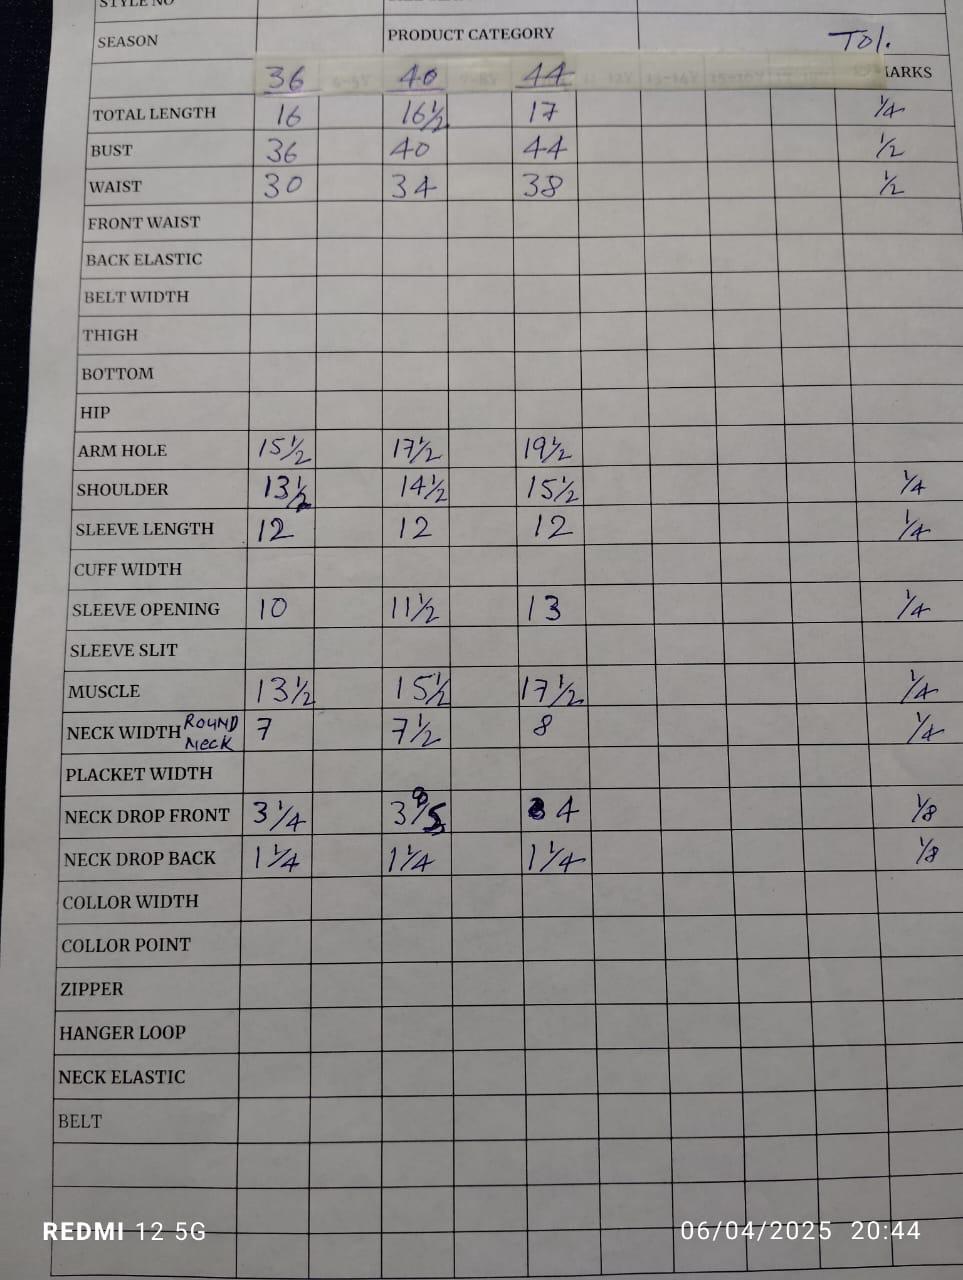 STYLE NO
SEASON PRODUCT CATEGORY Tol.
36 40 44 MARKS
TOTAL LENGTH 16 16 1/2 17 1/4
BUST 36 40 44 1/2
WAIST 30 34 38 1/2
FRONT WAIST
BACK ELASTIC
BELT WIDTH
THIGH
BOTTOM
HIP
ARM HOLE 15 1/2 17 1/2 19 1/2
SHOULDER 13 1/2 14 1/2 15 1/2 1/4
SLEEVE LENGTH 12 12 12 1/4
CUFF WIDTH
SLEEVE OPENING 10 11 1/2 13 1/4
SLEEVE SLIT
MUSCLE 13 1/2 15 1/2 17 1/2 1/4
NECK WIDTH ROUND NECK 7 7 1/2 8 1/4
PLACKET WIDTH
NECK DROP FRONT 3 1/4 3 4 1/8
NECK DROP BACK 1 1/4 1 1/4 1 1/4 1/8
COLLOR WIDTH
COLLOR POINT
ZIPPER
HANGER LOOP
NECK ELASTIC
BELT
REDMI 12 5G 06/04/2025 20:44